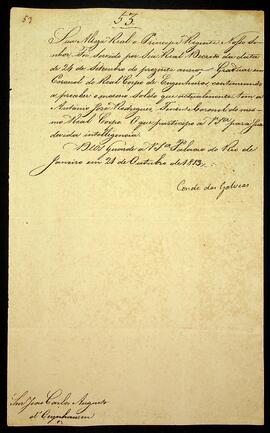 53
53.
Sua Alteza Real o Principe Regente Nosso Se-
nhor Foi Servido por Seu Real Decreto da data
de 24 de Setembro do prezente anno, Graduar em
Coronel do Real Corpo de Engenheiros, continuando
a perceber o mesmo soldo que actualmente tem a
Antonio José Rodrigues, Tenente Coronel do mes-
mo Real Corpo. O que participo a V. S.ª para Sua
devida intelligencia.
Deos Guarde a V. S.ª Palacio do Rio de
Janeiro em 21 de Outubro de 1813.
Conde das Galveas
Snr João Carlos Augusto
d'Oeynhausen